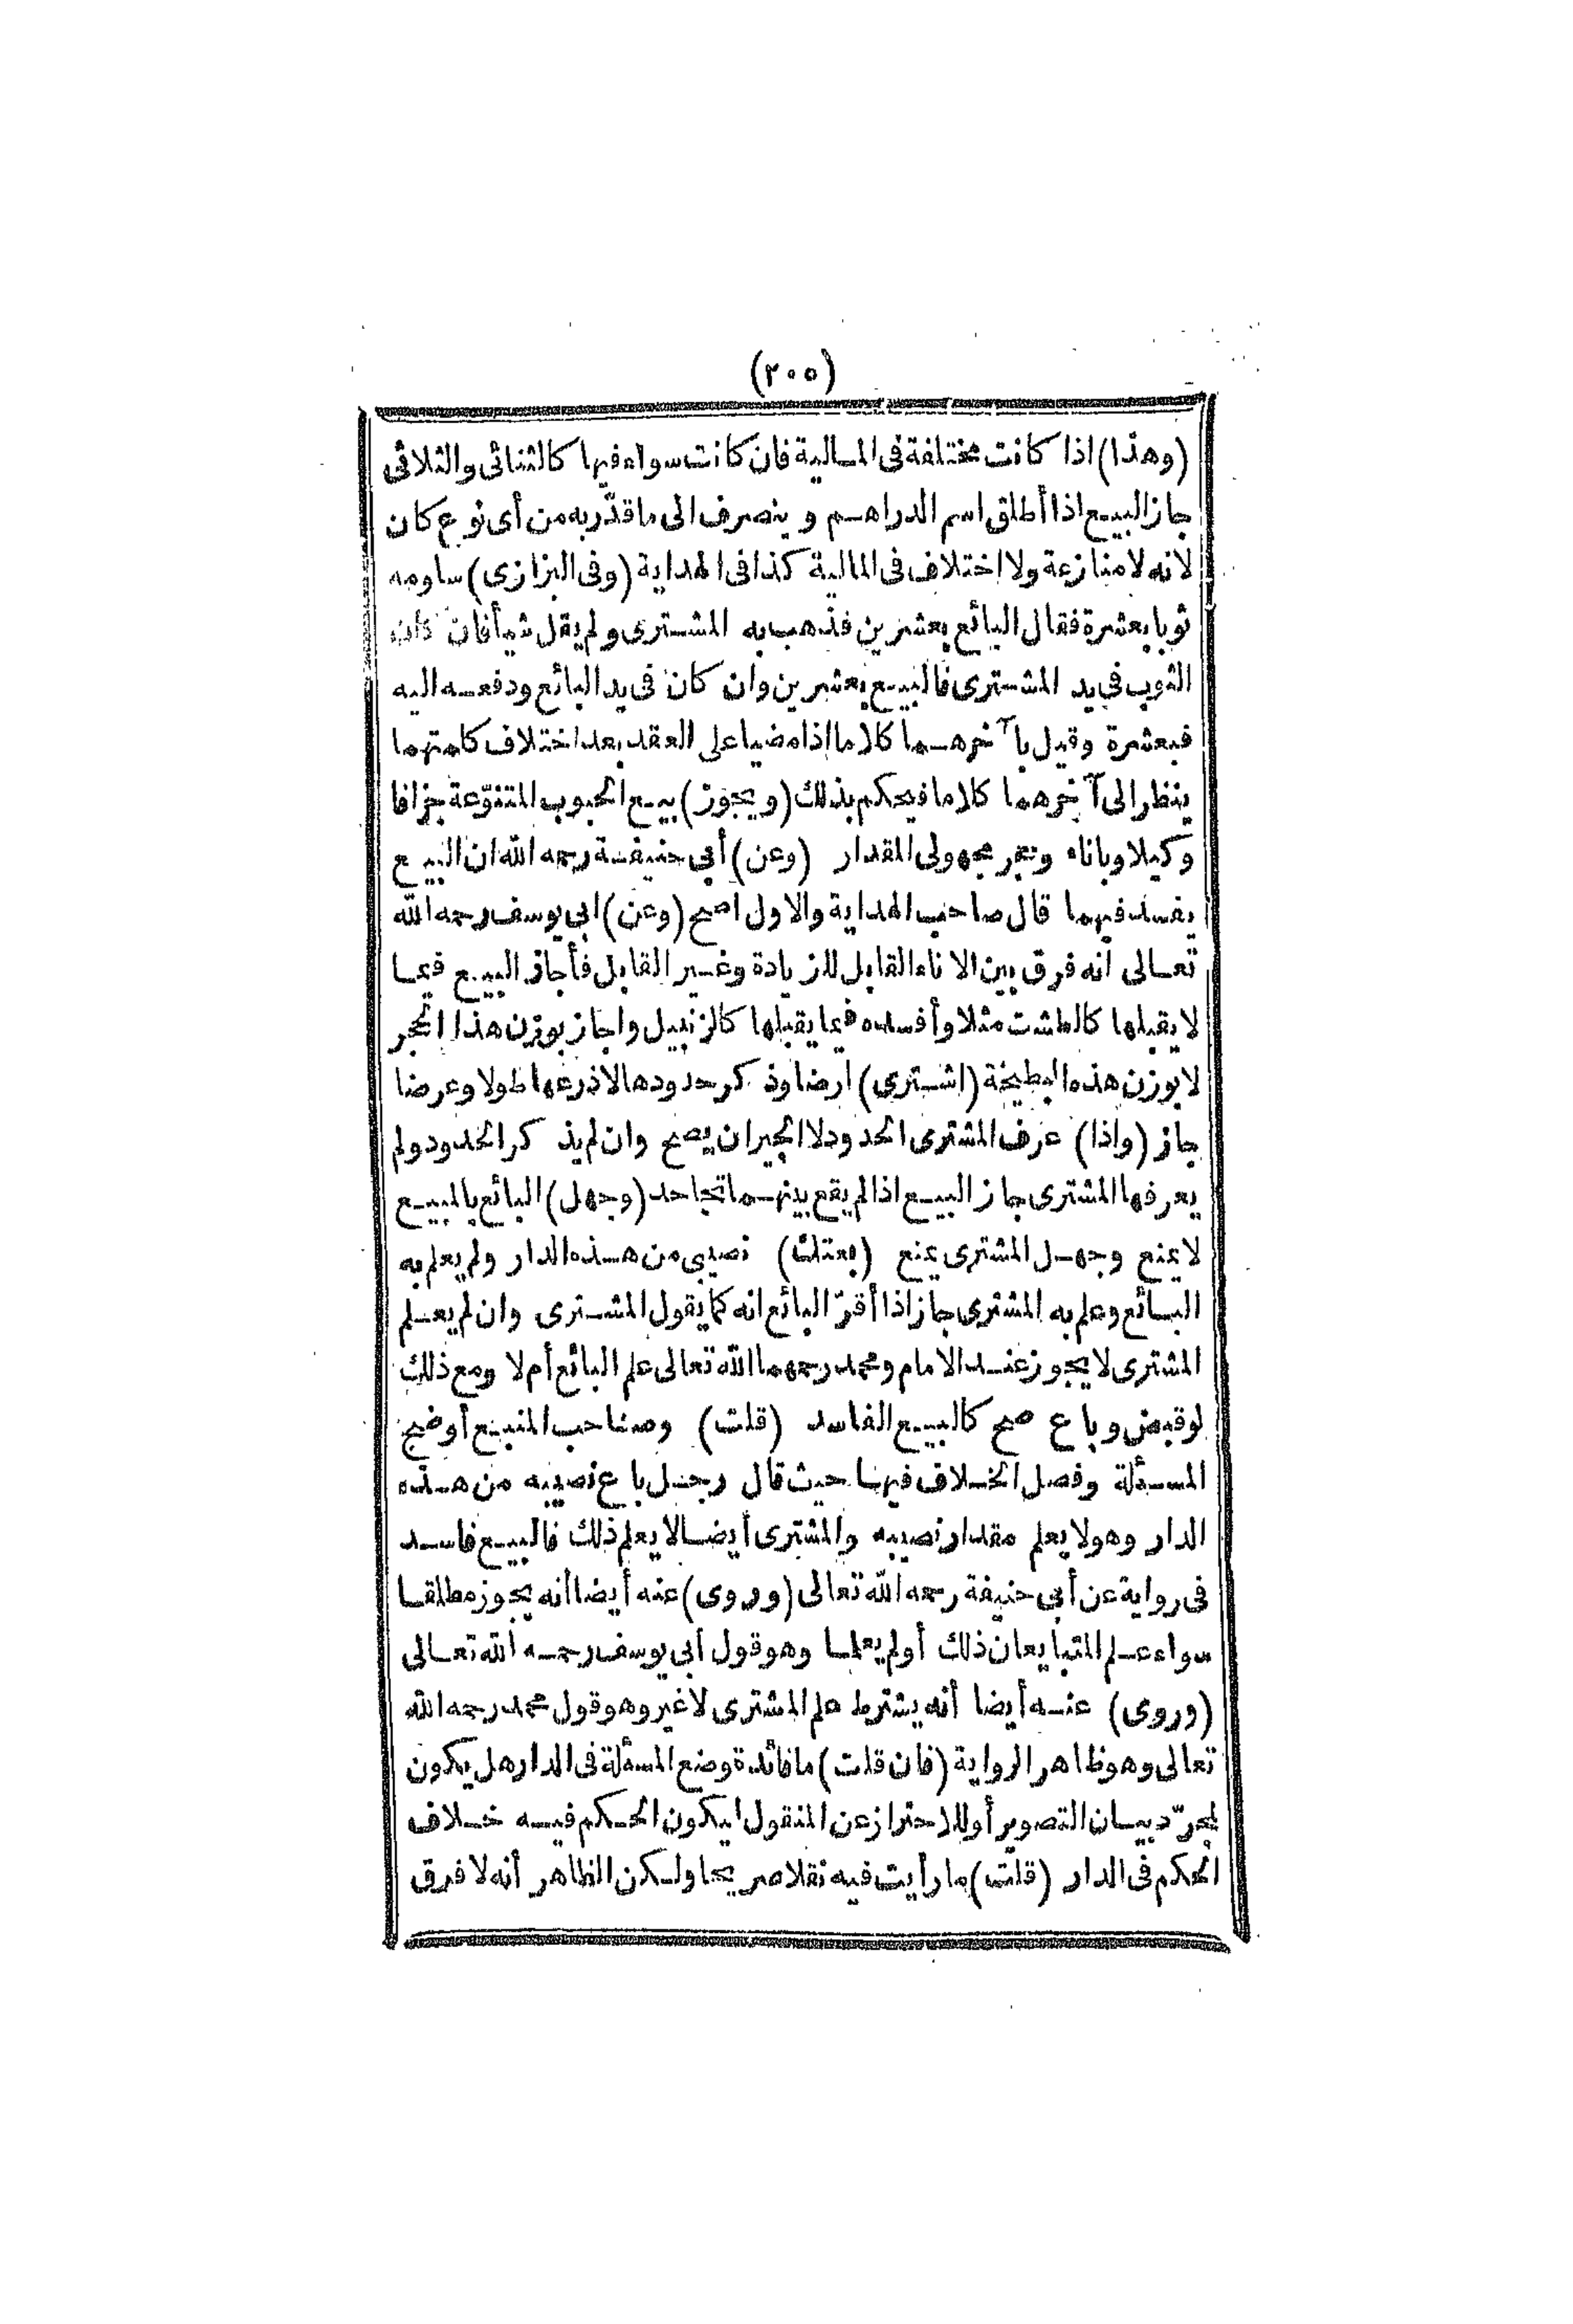 (٢٠٥)
(وهذا) اذا كانت مختلفة فى المالية فان كانت سواء فيها كالثنائى والثلاثى
جاز البيع اذا أطلق اسم الدراهم وينصرف الى ما قدّر به من أى نوع كان
لانه لا منازعة ولا اختلاف فى المالية كذا فى الهداية (وفى البزازى) ساومه
ثوبا بعشرة فقال البائع بعشرين فذهب به المشترى ولم يقل شيأ فان كان
الثوب فى يد المشترى فالبيع بعشرين وان كان فى يد البائع ودفعه اليه
فبعشرة وقيل بآخرهما كلاما اذا مضيا على العقد بعد اختلاف كلمتهما
ينظر الى آخرهما كلاما فيحكم بذلك (ويجوز) بيع الحبوب المتنوّعة جزافا
وكيلا وباناء وحجر مجهولى المقدار (وعن) أبى حنيفة رحمه الله ان البيع
يفسد فيهما قال صاحب الهداية والاول اصح (وعن) ابى يوسف رحمه الله
تعالى انه فرق بين الاناء القابل للزيادة وغير القابل فأجاز البيع فيما
لا يقبلها كالطشت مثلا وأفسده فيما يقبلها كالزنبيل واجاز بوزن هذا الحجر
لا بوزن هذه البطيخة (اشترى) ارضا وذكر حدودها لاذرعها طولا وعرضا
جاز (واذا) عرف المشترى الحدود لا الجيران يصح وان لم يذكر الحدود ولم
يعرفها المشترى جاز البيع اذا لم يقع بينهما تجاحد (وجهل) البائع بالمبيع
لا يمنع وجهل المشترى يمنع (بعتك) نصيبى من هذه الدار ولم يعلم به
البائع وعلم به المشترى جاز اذا أقرّ البائع انه كما يقول المشترى وان لم يعلم
المشترى لا يجوز عند الامام ومحمد رحمهما الله تعالى علم البائع أم لا ومع ذلك
لو قبض وباع صح كالبيع الفاسد (قلت) وصاحب المنبع أوضح
المسئلة وفصل الخلاف فيها حيث قال رجل باع نصيبه من هذه
الدار وهو لا يعلم مقدار نصيبه والمشترى أيضا لا يعلم ذلك فالبيع فاسد
فى رواية عن أبى حنيفة رحمه الله تعالى (وروى) عنه أيضا أنه يجوز مطلقا
سواء علم المتبايعان ذلك أو لم يعلما وهو قول أبى يوسف رحمه الله تعالى
(وروى) عنه أيضا أنه يشترط علم المشترى لا غير وهو قول محمد رحمه الله
تعالى وهو ظاهر الرواية (فان قلت) ما فائدة وضع المسئلة فى الدار هل يكون
لمجرّد بيان التصوير أو للاحتراز عن المنقول ليكون الحكم فيه خلاف
الحكم فى الدار (قلت) ما رأيت فيه نقلا صريحا ولكن الظاهر أنه لا فرق